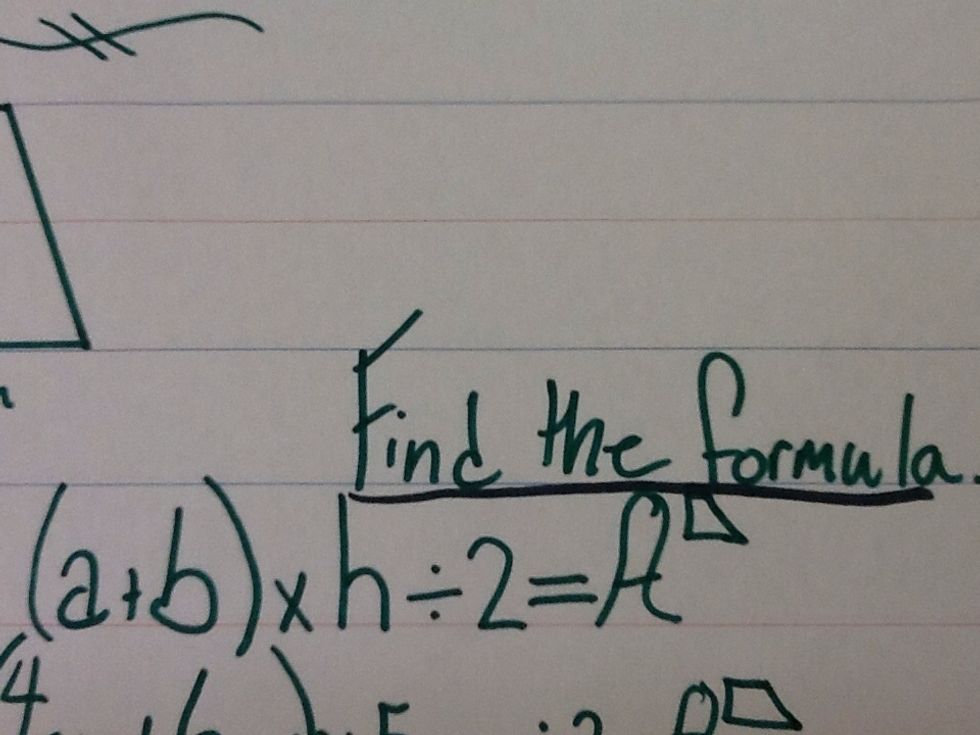 Find the formula.
(a+b)×h÷2=A